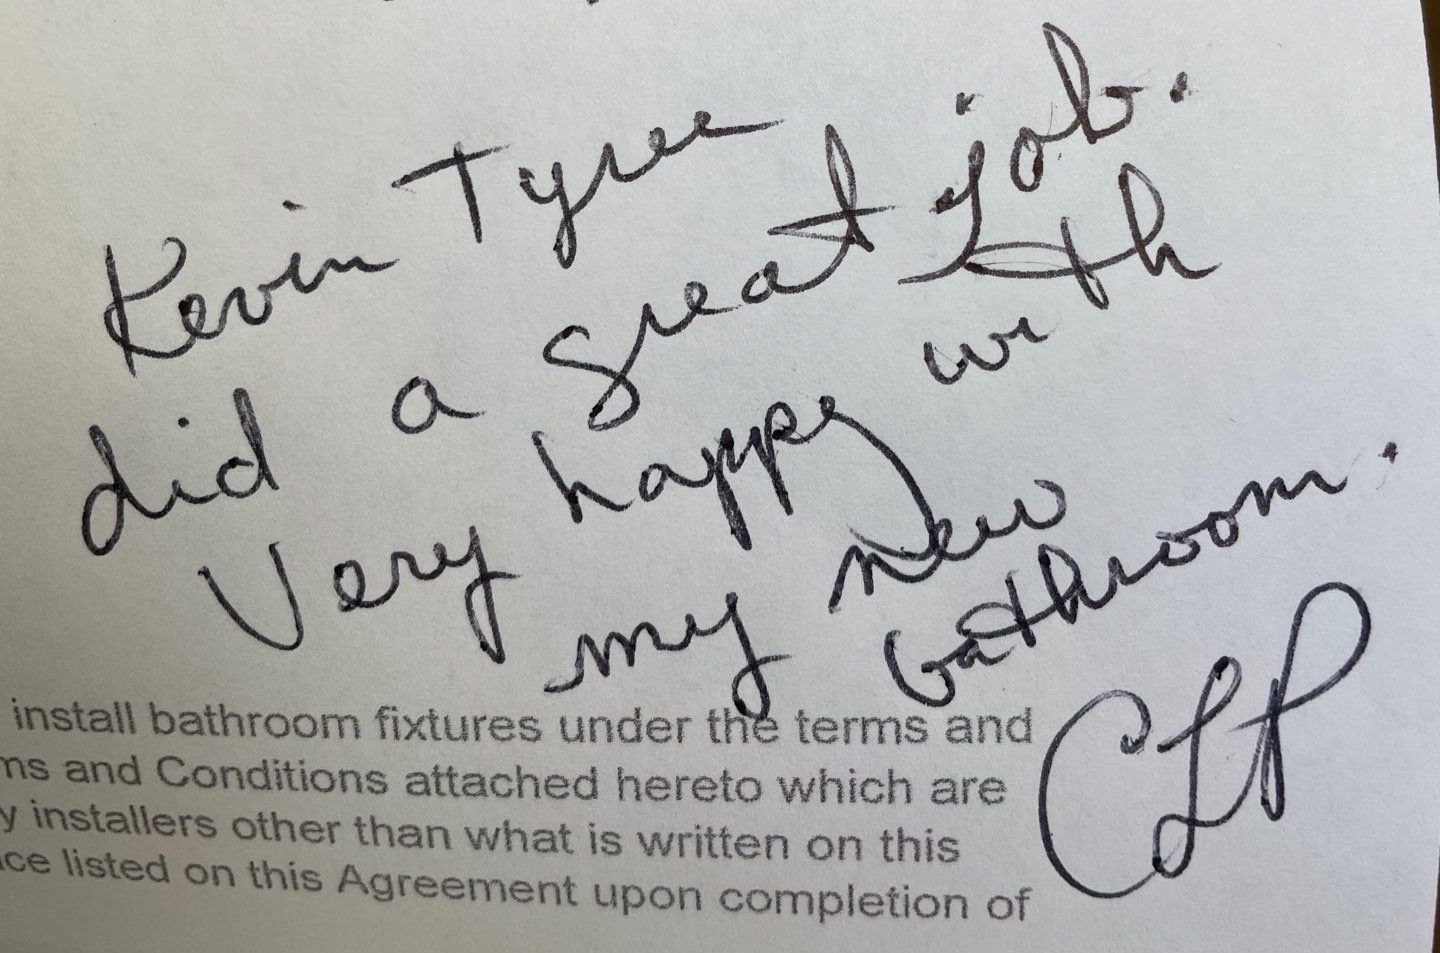 Kevin Tyree
did a great job.
Very happy with
my new
bathroom.
CLP
install bathroom fixtures under the terms and
ms and Conditions attached hereto which are
y installers other than what is written on this
ce listed on this Agreement upon completion of